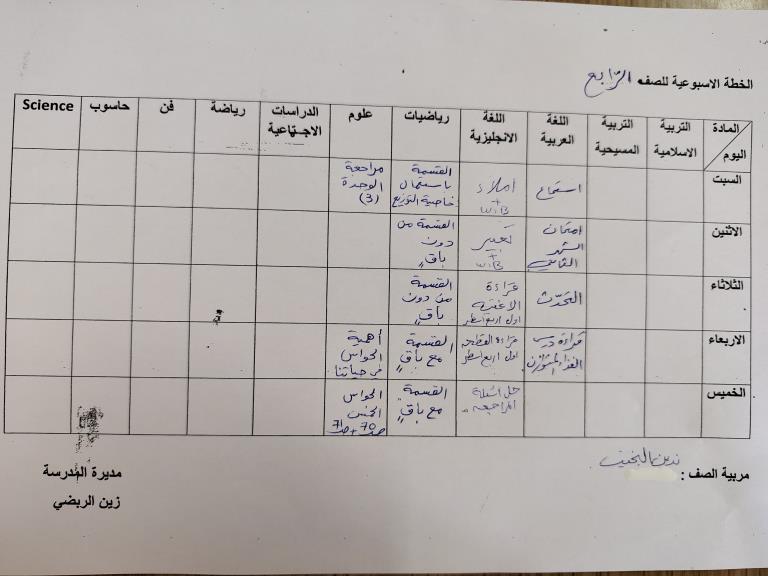 الخطة الاسبوعية للصف الرّابع
المادة اليوم | التربية الاسلامية | التربية المسيحية | اللغة العربية | اللغة الانجليزية | رياضيات | علوم | الدراسات الاجتماعية | رياضة | فن | حاسوب | Science
السبت | استماع | املاء + W.B | القسمة باستعمال خاصية التوزيع | مراجعة الوحدة (3)
الاثنين | امتحان الشهر الثاني | تعبير + W.B | القسمة من دون باقٍ
الثلاثاء | التحدّث | قراءة الاغنية اول اربع اسطر | القسمة من دون باقٍ
الاربعاء | قراءة درس الغذاء المتوازن | قراءة القطعة اول اربع اسطر | القسمة مع باقٍ | أهمية الحواس في حياتنا
الخميس | حل اسئلة المراجعة | القسمة مع باقٍ | الحواس الخمس ص70 + ص71
مربية الصف :
مديرة المدرسة
زين الربضي